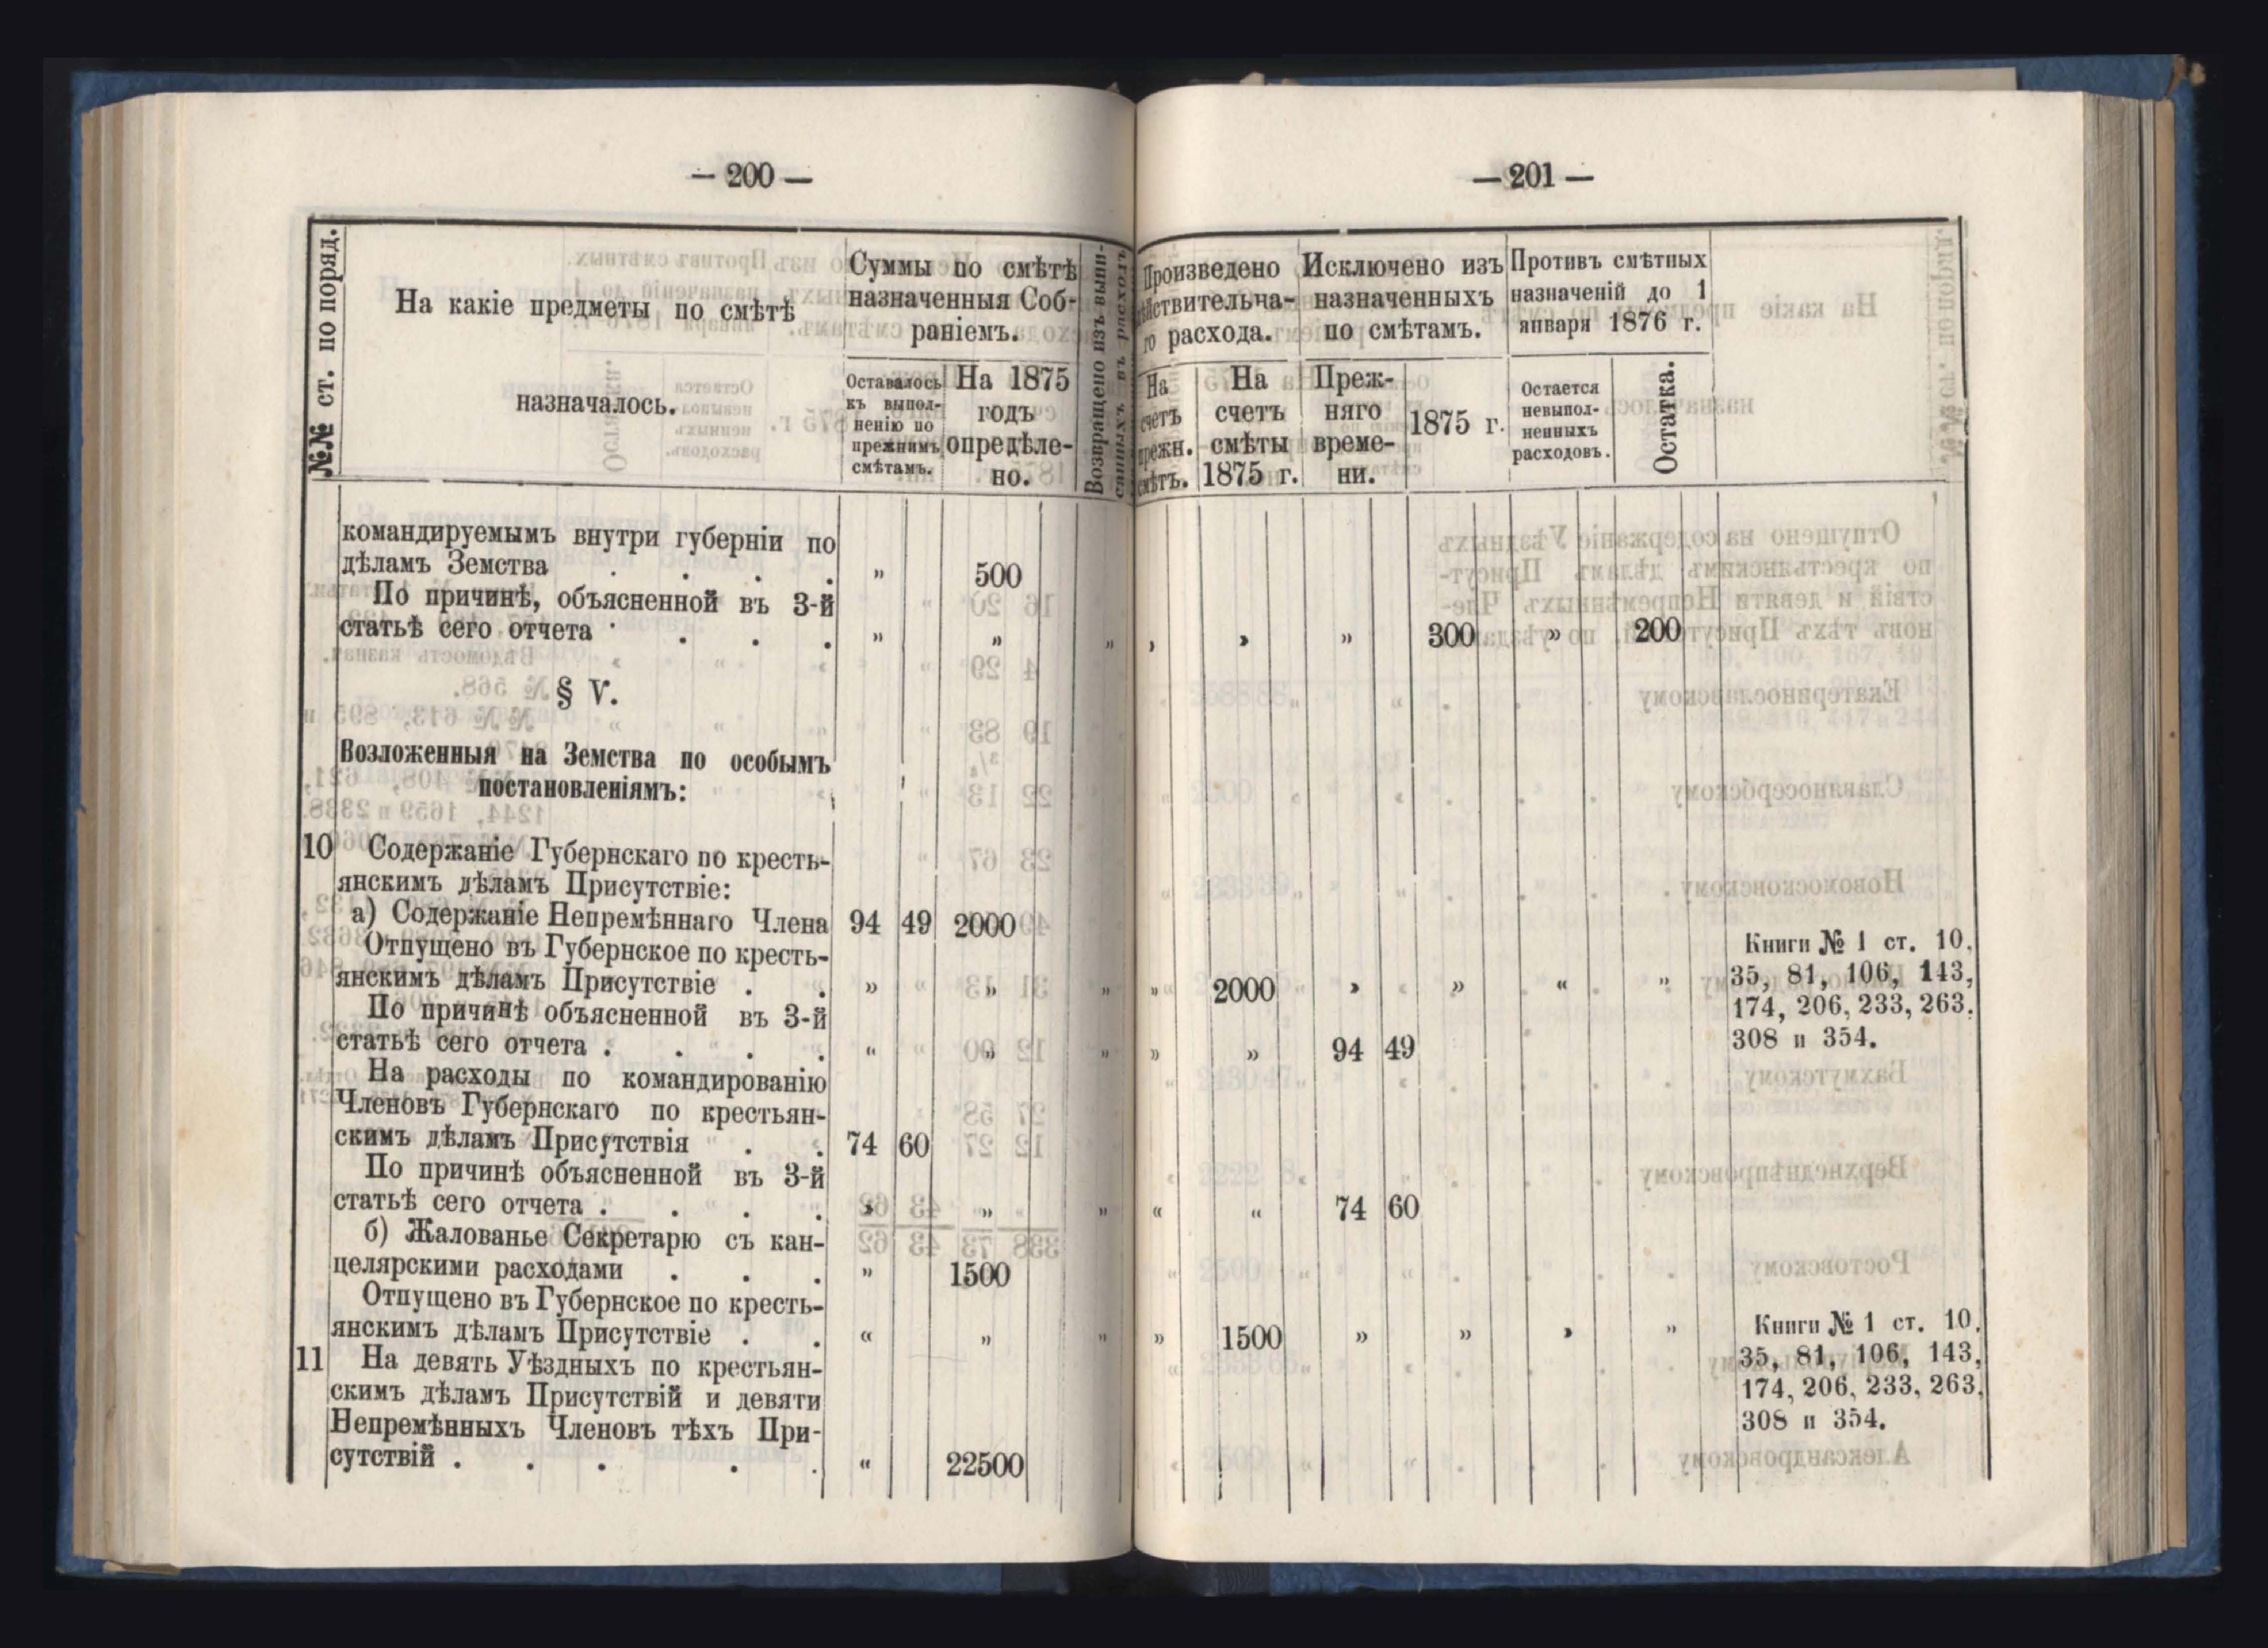 — 200 —
№№ ст. по поряд.
На какіе предметы по смѣтѣ
назначалось.
Суммы по смѣтѣ
назначенныя Соб-
раніемъ.
Оставалось
къ выпол-
ненію по
прежнимъ
смѣтамъ.
На 1875
годъ
опредѣле-
но.
Возвращено изъ выпи-
санныхъ въ расходъ
командируемымъ внутри губерніи по
дѣламъ Земства . . . . „ 500
По причинѣ, объясненной въ 3-й
статьѣ сего отчета . . . . „ „ „
§ V.
Возложенныя на Земства по особымъ
постановленіямъ:
10 Содержаніе Губернскаго по кресть-
янскимъ дѣламъ Присутствіе:
а) Содержаніе Непремѣннаго Члена 94 49 2000
Отпущено въ Губернское по кресть-
янскимъ дѣламъ Присутствіе . . „ „ „
По причинѣ объясненной въ 3-й
статьѣ сего отчета . . . . „ „ „
На расходы по командированію
Членовъ Губернскаго по крестьян-
скимъ дѣламъ Присутствія . . 74 60
По причинѣ объясненной въ 3-й
статьѣ сего отчета . . . . „ „ „
б) Жалованье Секретарю съ кан-
целярскими расходами . . . „ 1500
Отпущено въ Губернское по кресть-
янскимъ дѣламъ Присутствіе . . „ „ „
11 На девять Уѣздныхъ по крестьян-
скимъ дѣламъ Присутствій и девяти
Непремѣнныхъ Членовъ тѣхъ При-
сутствій . . . . . „ 22500
— 201 —
Произведено
дѣйствительна-
го расхода.
На
счетъ
прежн.
смѣтъ.
На
счетъ
смѣты
1875 г.
Исключено изъ
назначенныхъ
по смѣтамъ.
Преж-
няго
време-
ни.
1875 г.
Противъ смѣтныхъ
назначеній до 1
января 1876 г.
Остается
невыпол-
ненныхъ
расходовъ.
Остатка.
„ „ „ 300 „ 200
„ 2000 „ „ „ „
Книги № 1 ст. 10,
35, 81, 106, 143,
174, 206, 233, 263,
308 и 354.
„ „ 94 49
„ „ 74 60
„ 1500 „ „ „ „
Книги № 1 ст. 10,
35, 81, 106, 143,
174, 206, 233, 263,
308 и 354.